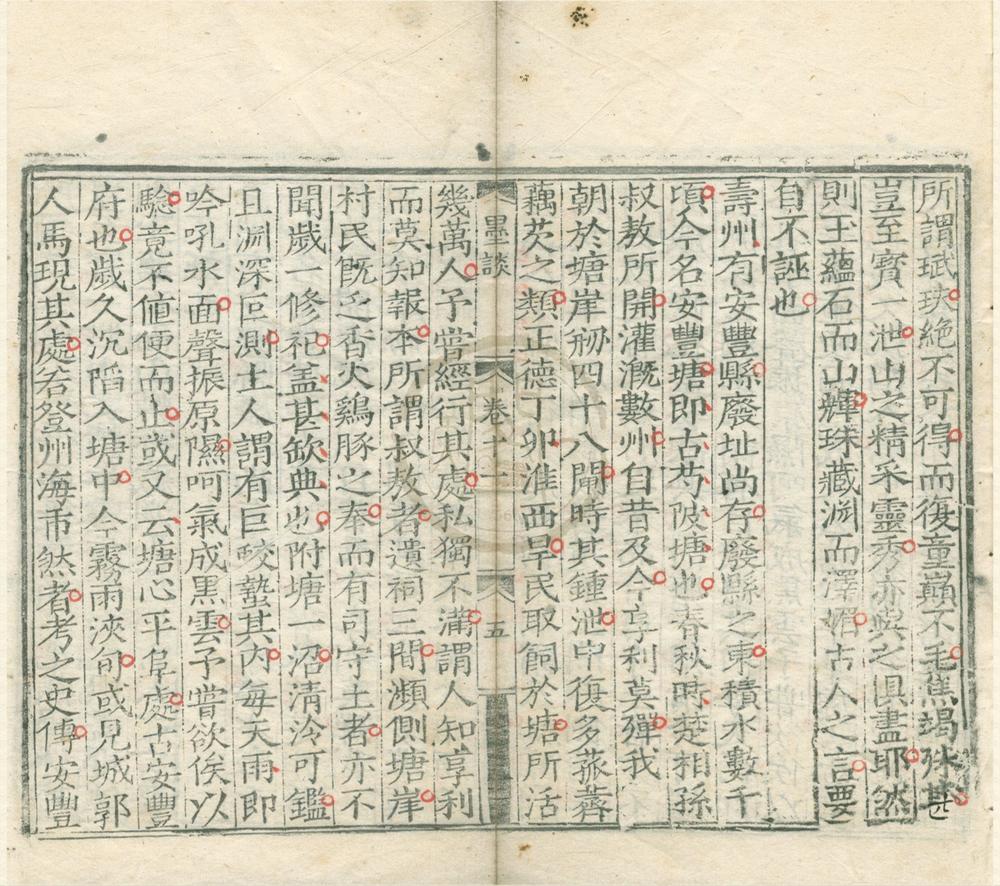 所謂珷玞絶不可得而復童巔不毛焦竭殊甚
豈至寳一泄山之精采靈秀亦與之俱盡耶然
則玉蘊石而山輝珠藏淵而澤媚古人之言要
自不誣也
壽州有安豐縣廢址尚存廢縣之東積水數千
頃今名安豐塘即古芍陂塘也春秋時楚相孫
叔敖所開灌溉數州自昔及今享利莫殫我
朝於塘岸剏四十八閘時其鍾泄中復多菰蔣
藕芡之類正德丁卯淮西旱民取飼於塘所活
墨談
卷十一
五
幾萬人予嘗經行其處私獨不滿謂人知享利
而莫知報本所謂叔敖者遺祠三間瀕側塘岸
村民旣乏香火鷄豚之奉而有司守土者亦不
聞歲一修祀盖甚欽典也附塘一沼清泠可鑑
且淵深叵測土人謂有巨蛟蟄其内每天雨即
吟吼水面聲振原隰呵氣成黑雲予嘗欲俟以
驗竟不値便而止或又云塘心平阜處古安豐
府也歲久沉陷入塘中今霧雨浹旬或見城郭
人馬現其處若登州海市然者考之史傳安豐